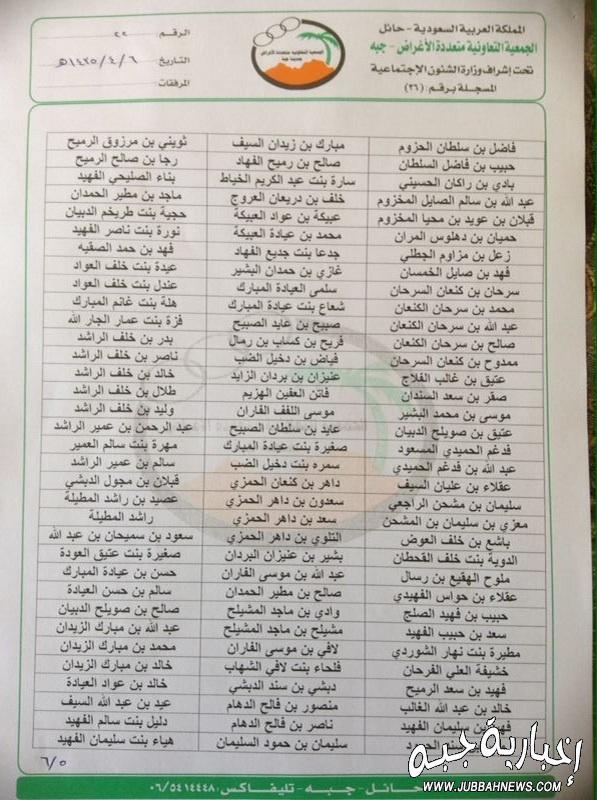 المملكة العربية السعودية - حائل
الجمعية التعاونية متعددة الأغراض - جبه
تحت إشراف وزارة الشئون الإجتماعية
المسجلة برقم: (٢٦)
الرقم: ٢٢
التاريخ: ١٤٣٥/٤/٦هـ
المرفقات
فاضل بن سلطان الحزوم	مبارك بن زيدان السيف	ثويني بن مرزوق الرميح
حبيب بن فاضل السلطان	صالح بن رميح الفهاد	رجا بن صالح الرميح
بادي بن راكان الحسيني	سارة بنت عبد الكريم الخياط	بناء الصليحي الفهيد
عبد الله بن سالم الصايل المخزوم	خلف بن دريعان العروج	ماجد بن مطير الحمدان
قبلان بن عويد بن محيا المخزوم	عبيكة بن عواد العبيكة	حجية بنت طريخم الدبيان
حميان بن دهلوس المران	محمد بن عيادة العبيكة	نورة بنت ناصر الفهيد
زعل بن مزاوم الجطلي	جدعا بنت جديع الفهاد	فهد بن حمد الصقيه
فهد بن صايل الخمسان	غازي بن حمدان البشير	عيدة بنت خلف العواد
سرحان بن كنعان السرحان	سلمى العيادة المبارك	عندل بنت خلف العواد
محمد بن سرحان الكنعان	شعاع بنت عيادة المبارك	هلة بنت غانم المبارك
عبد الله بن سرحان الكنعان	صبيح بن عايد الصبيح	فزة بنت عمار الجار الله
صالح بن سرحان الكنعان	فريح بن كساب بن رمال	بدر بن خلف الراشد
ممدوح بن كنعان السرحان	فياض بن دخيل الضب	ناصر بن خلف الراشد
عتيق بن غالب الفلاج	عنيزان بن بردان الزايد	خالد بن خلف الراشد
صقر بن سعد السندان	فاتن العفين الهزيم	طلال بن خلف الراشد
موسى بن محمد البشير	موسى اللفف الفاران	وليد بن خلف الراشد
عتيق بن صويلح الدبيان	عايد بن سلطان الصبيح	عبد الرحمن بن عمير الراشد
فدغم الحميدي المسعود	صغيرة بنت عيادة المبارك	مهرة بنت سالم العمير
عبد الله بن فدغم الحميدي	سمره بنت دخيل الضب	سالم بن عمير الراشد
عقلاء بن عليان السيف	داهر بن كنعان الحمزي	قبلان بن مجول الدبشي
سليمان بن مشحن الراجعي	سعدون بن داهر الحمزي	عصيد بن راشد المطيلة
معزي بن سليمان بن المشحن	سعد بن داهر الحمزي	راشد المطيلة
باشع بن خلف العوض	التلوي بن داهر الحمزي	سعود بن سميحان بن عبد الله
الدوية بنت خلف القحطان	بشير بن عنيزان البردان	صغيرة بنت عتيق العودة
ملوح الهقيع بن رسال	عبد الله بن موسى الفاران	حسن بن عيادة المبارك
عقلاء بن حواس الفهيدي	صالح بن مطير الحمدان	سالم بن حسن العيادة
حبيب بن فهيد الصلج	وادي بن ماجد المشيلح	صالح بن صويلح الدبيان
سعد بن حبيب الفهيد	مشيلح بن ماجد المشيلح	عبد الله بن مبارك الزيدان
مطيرة بنت نهار الشوردي	لافي بن موسى الفاران	محمد بن مبارك الزيدان
خشيفة العلي الفرحان	فلحاء بنت لافي الشهاب	خالد بن مبارك الزيدان
فهيد بن سعد الرميح	دبشي بن سند الدبشي	خالد بن عواد العيادة
خالد بن عبد الله الغالب	منصور بن فالح الدهام	عيد بن عبد الله السيف
فهيد بن سليمان الفهيد	ناصر بن فالح الدهام	دليل بنت سالم الفهيد
سليمان بن حمود السليمان	هياء بنت سليمان الفهيد
٦/٥
حائل - جبه - تليفاكس: ٠٦/٥٤١٤٤٤٨
إخبارية جبه
WWW.JUBBAHNEWS.COM